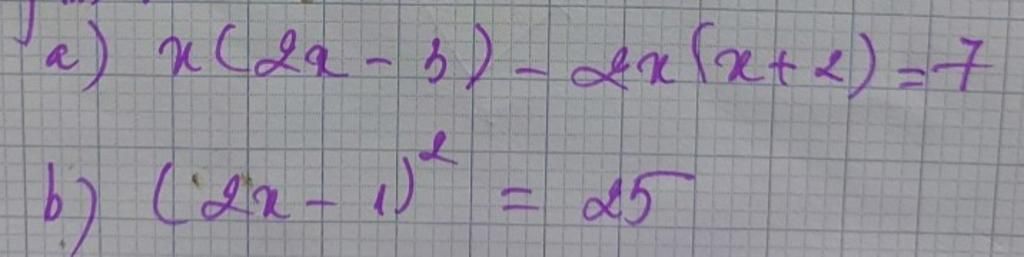 a) x(2x - 3) - 2x(x + 2) = 7
b) (2x - 1)² = 25